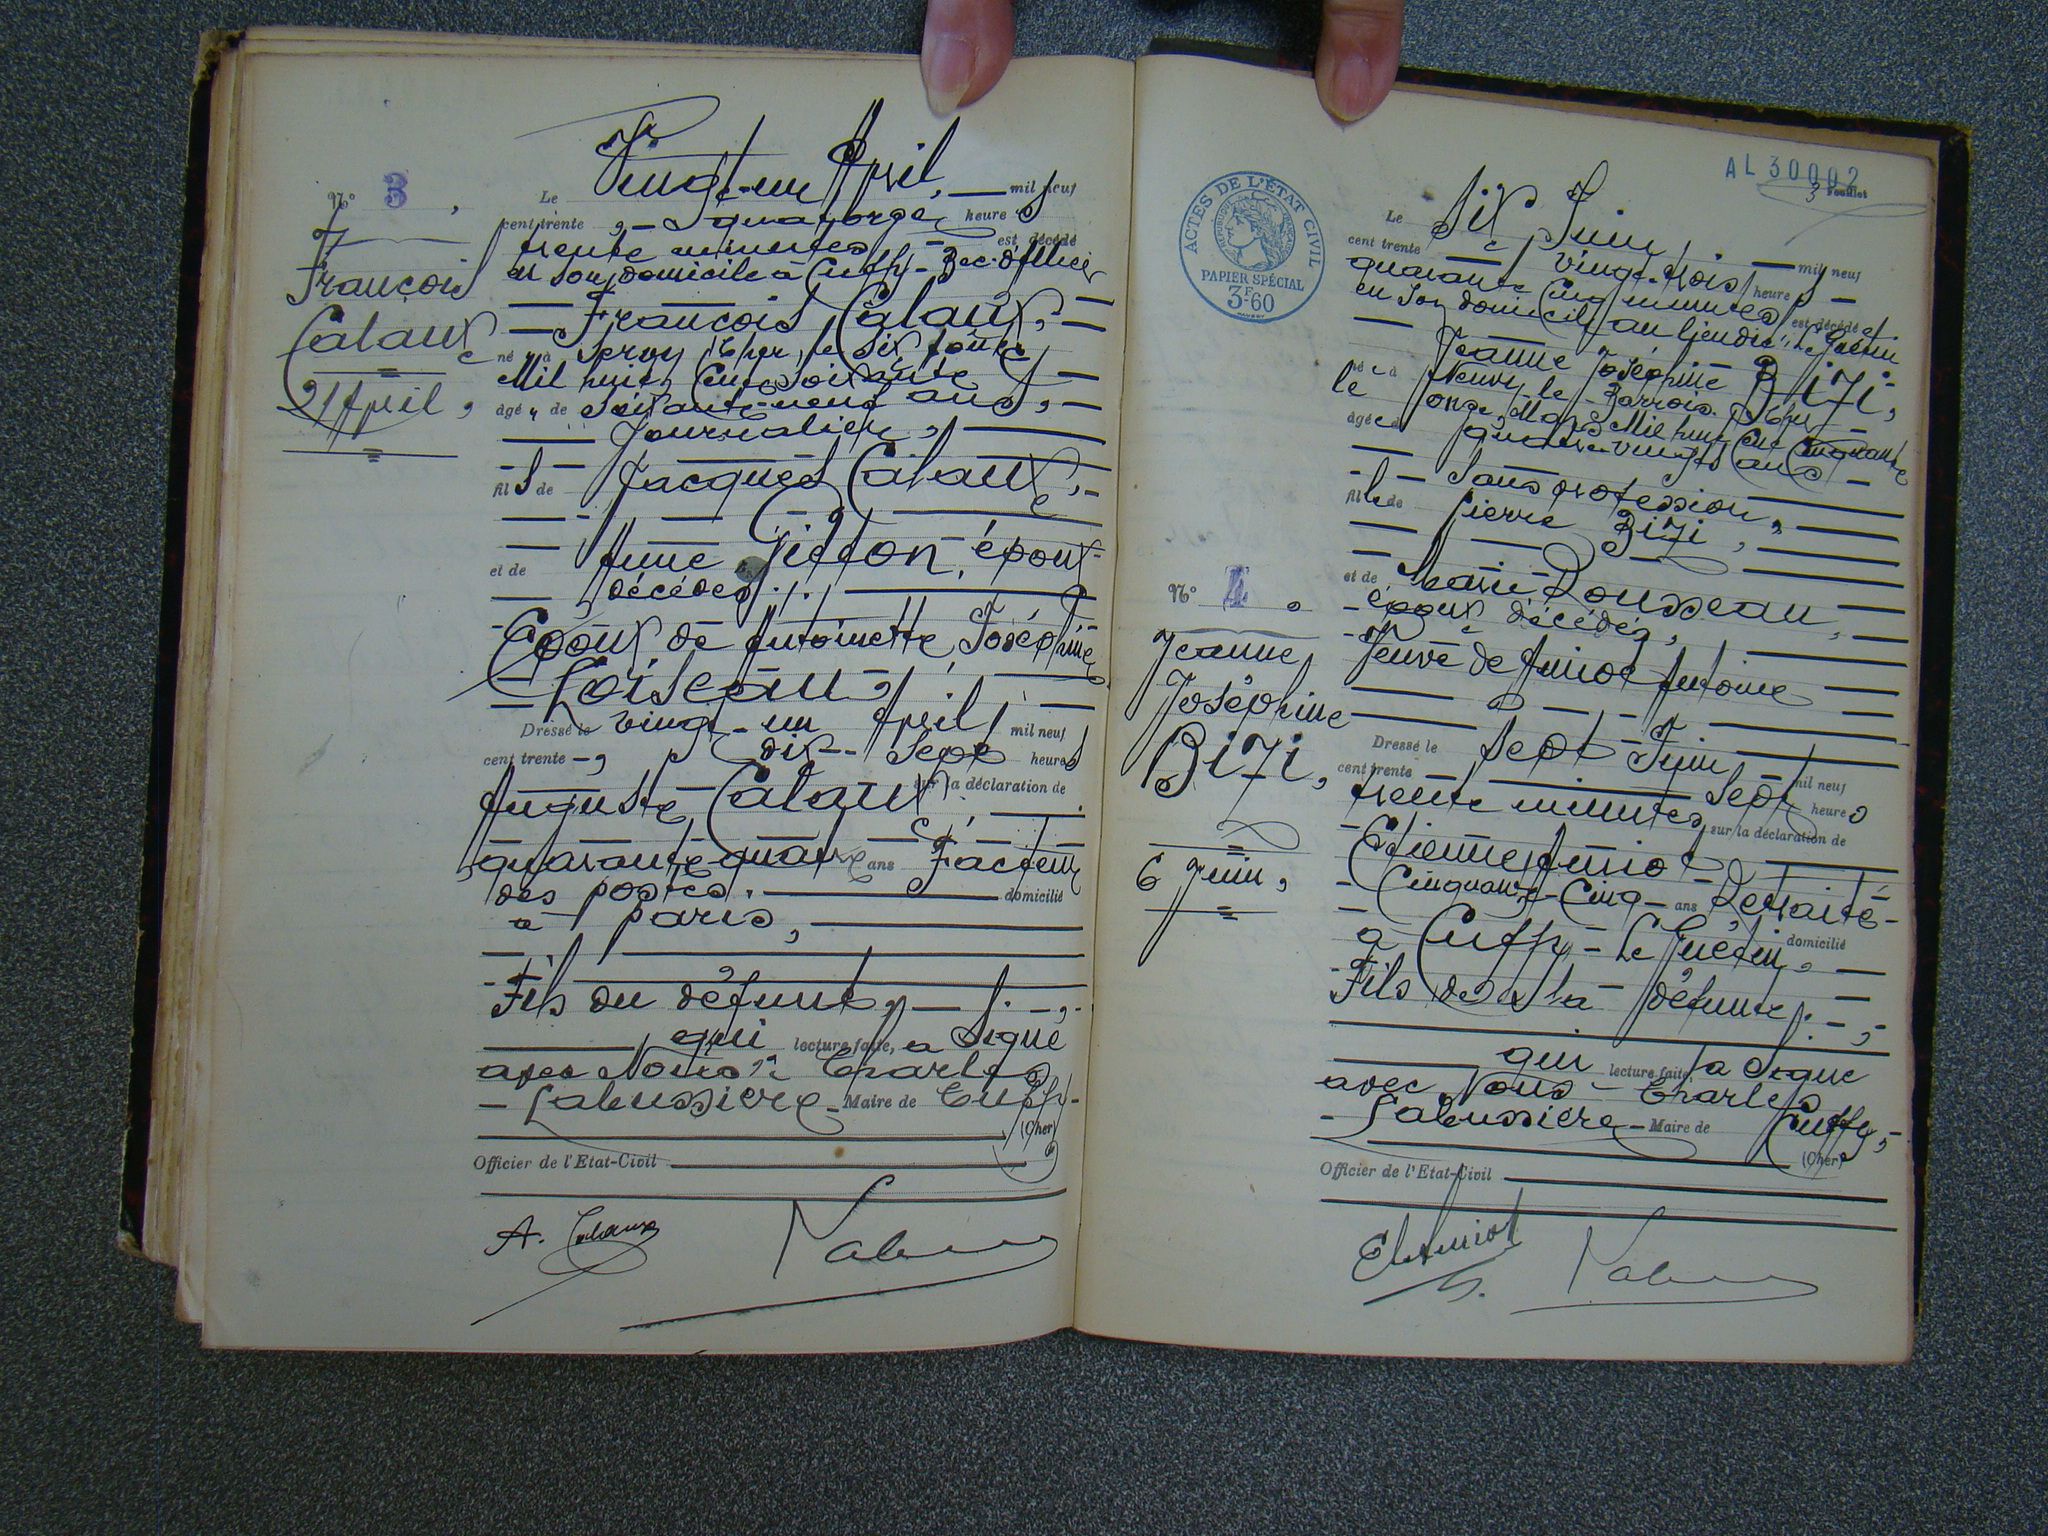 N° 3,
François
Calaux
21 Avril,
Le Vingt-un Avril, mil neuf
cent trente, quatorze heures
trente minutes est décédé
en son domicile à Cuffy - Bec-d'Allier
François Calaux,
né à (Cher) le six
Mil huit Cent Soixante
âgé de Soixante-neuf ans,
Journalier,
fils de Jacques Calaux,
et de Anne époux
décédés
Epoux de Antoinette Joséphine
Loiseau,
Dressé le vingt-un Avril mil neuf
cent trente, dix-Sept heures
sur la déclaration de
Auguste Calaux,
quarante-quatre ans Facteur
des postes. domicilié
à paris,
Fils du défunt,
qui lecture faite, a Signé
avec Nous Charles
Labussière Maire de Cuffy
(Cher)
Officier de l'Etat-Civil
A. Calaux
AL 30002
3 Feuillet
ACTES DE L'ÉTAT CIVIL
RÉPUBLIQUE FRANÇAISE
PAPIER SPÉCIAL
3F.60
N° 4.
Jeanne
Joséphine
Bizi,
6 Juin,
Le Six Juin, mil neuf
cent trente vingt-trois heures
quarante Cinq minutes est décédée
en son domicile au lieudit "le Guétin
Jeanne Joséphine Bizi,
née à Neuvy-le-Barrois (Cher)
le onze Mars Mil huit Cent Cinquante
âgée de quatre-vingts ans
Sans profession,
fille de Pierre Bizi,
et de Marie Rousseau,
époux décédés,
Veuve de Amiot Antoine
Dressé le Sept Juin mil neuf
cent trente Sept heures
trente minutes sur la déclaration de
Etienne Amiot
Cinquante-Cinq ans Retraité
domicilié
à Cuffy - Le Guétin,
Fils de la défunte.
qui lecture faite, a Signé
avec Nous Charles
Labussière Maire de Cuffy,
(Cher)
Officier de l'Etat-Civil
Et Amiot